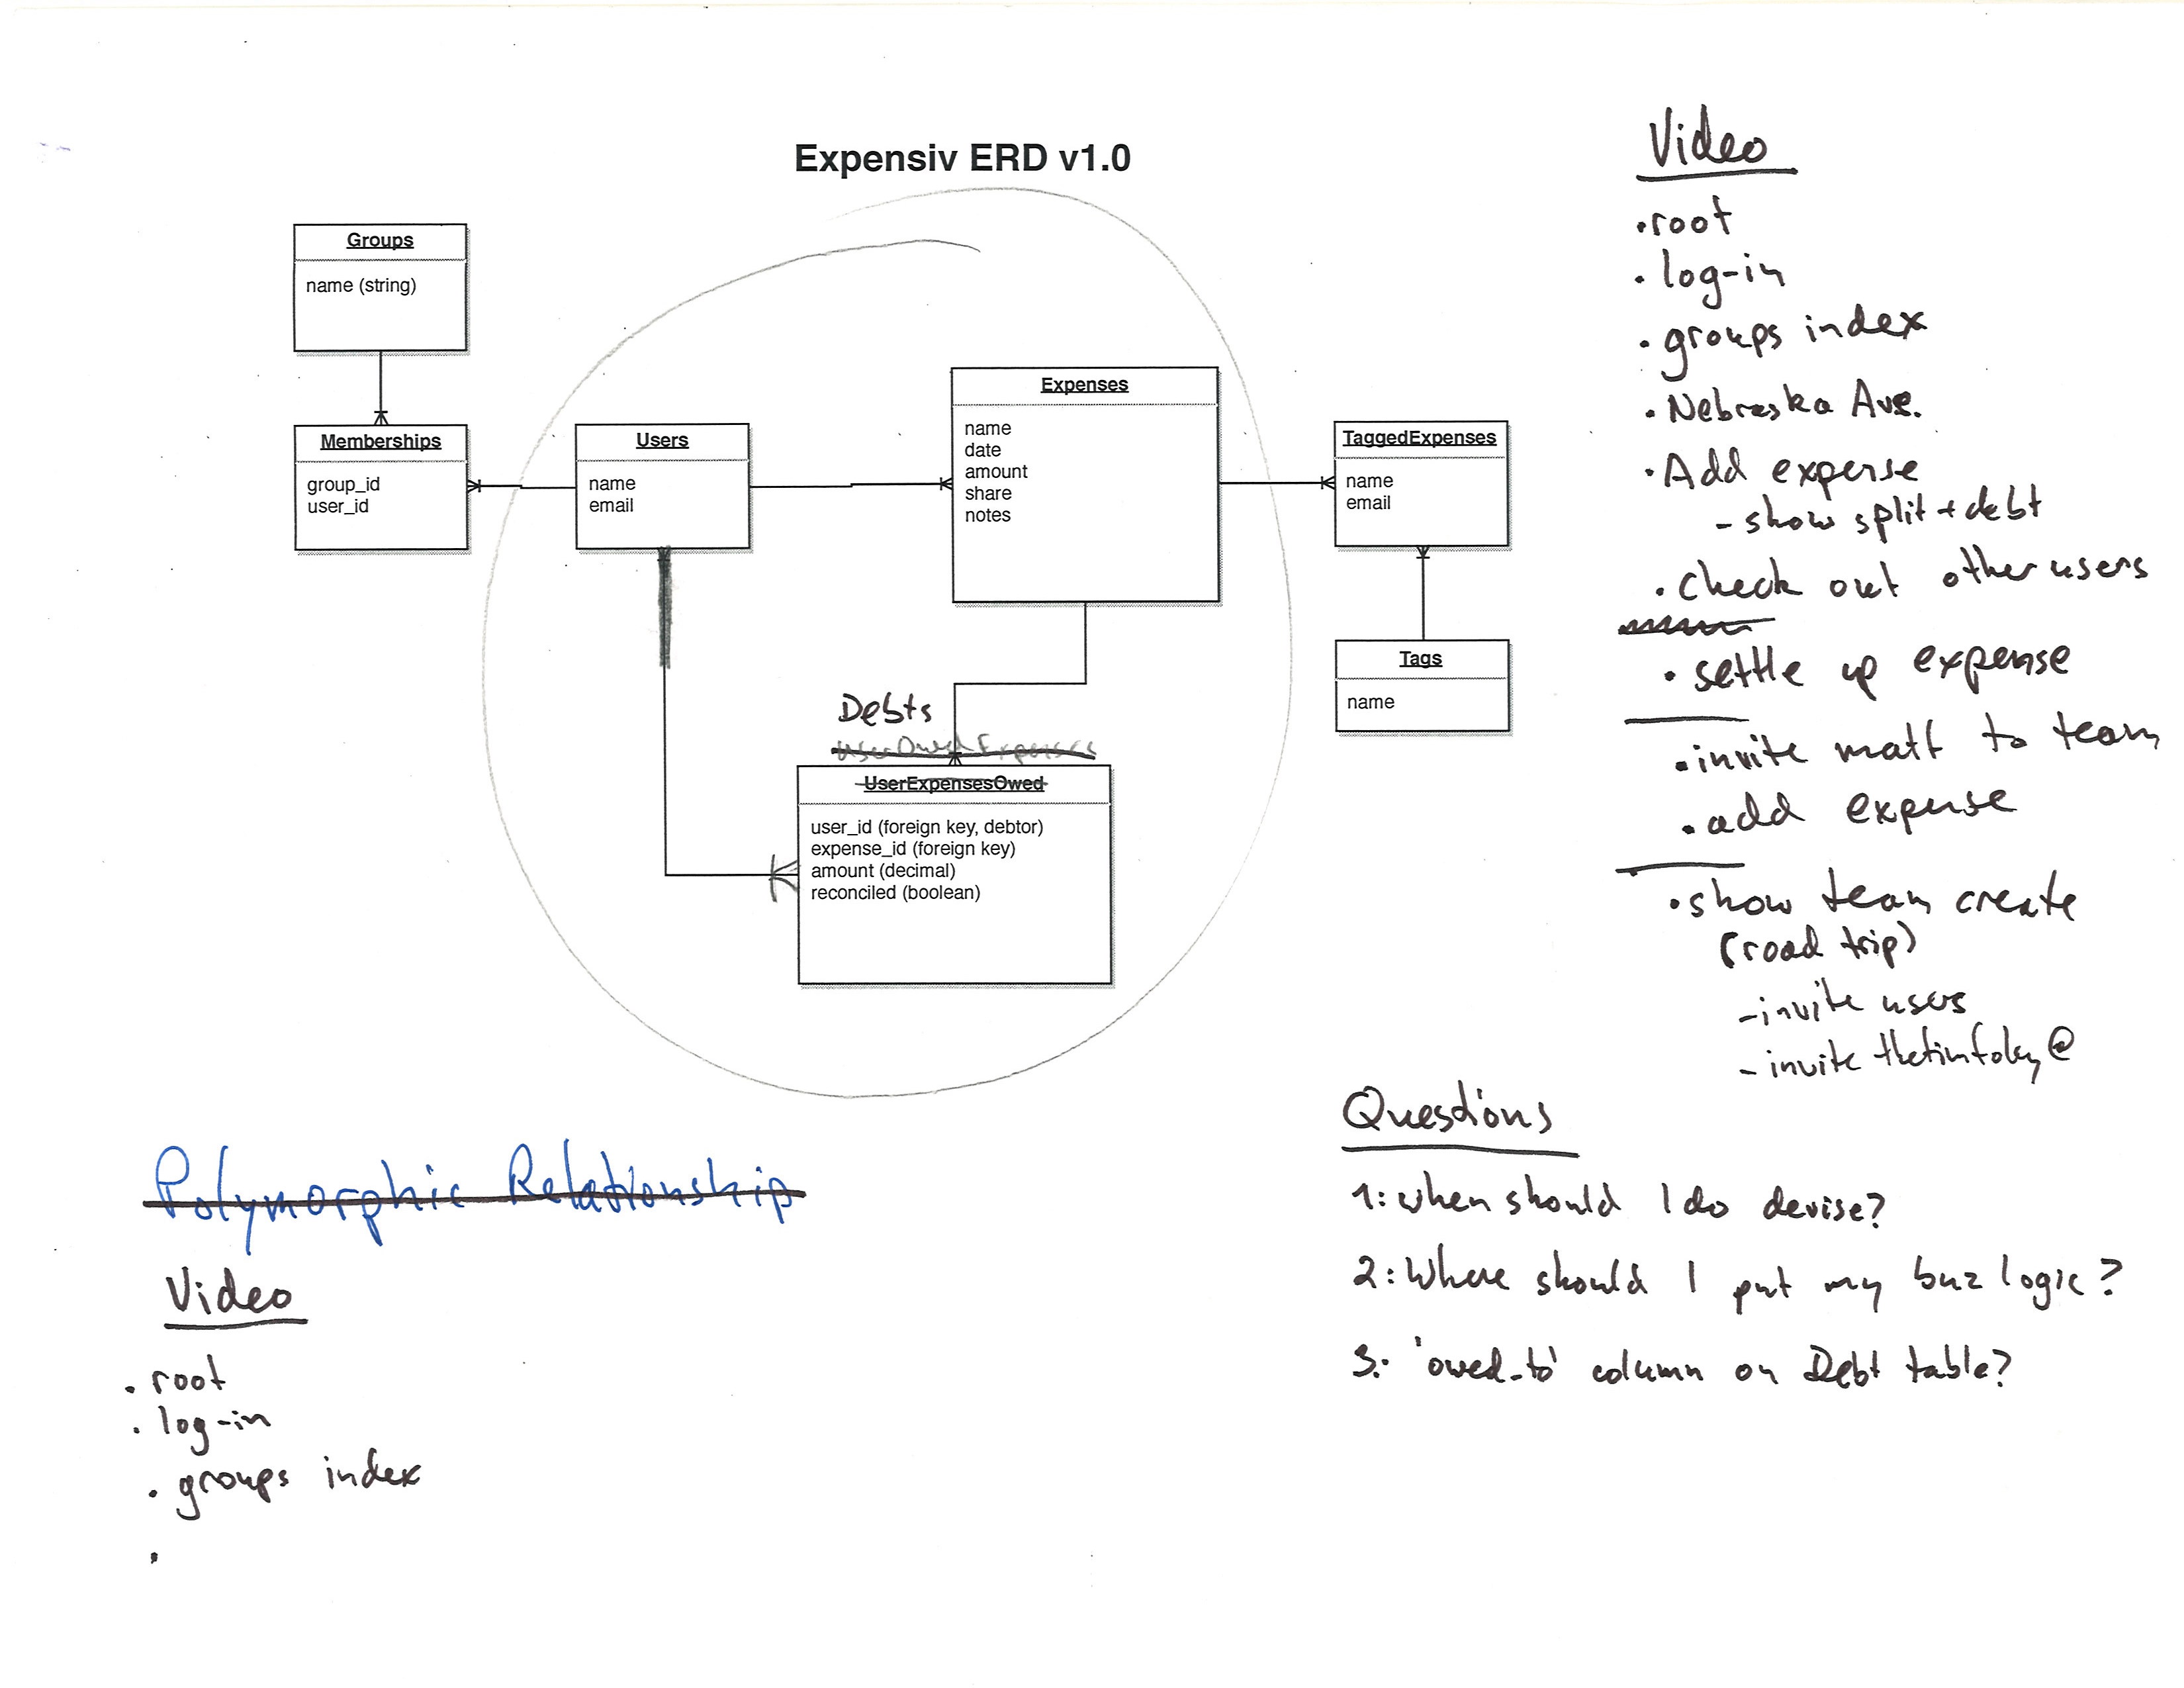 Expensiv ERD v1.0
Groups
name (string)
Memberships
group_id
user_id
Users
name
email
Expenses
name
date
amount
share
notes
TaggedExpenses
name
email
Tags
name
Debts
UserOwedExpenses
UserExpensesOwed
user_id (foreign key, debtor)
expense_id (foreign key)
amount (decimal)
reconciled (boolean)
Video
• root
• log-in
• groups index
• Nebraska Ave.
• Add expense
- show split + debt
• check out other users
• settle up expense
• invite matt to team
• add expense
• show team create
(road trip)
- invite users
- invite thetimfoley@
Questions
1: when should I do devise?
2: Where should I put my buz logic?
3: 'owed_to' column on Debt table?
Polymorphic Relationship
Video
• root
• log-in
• groups index
•